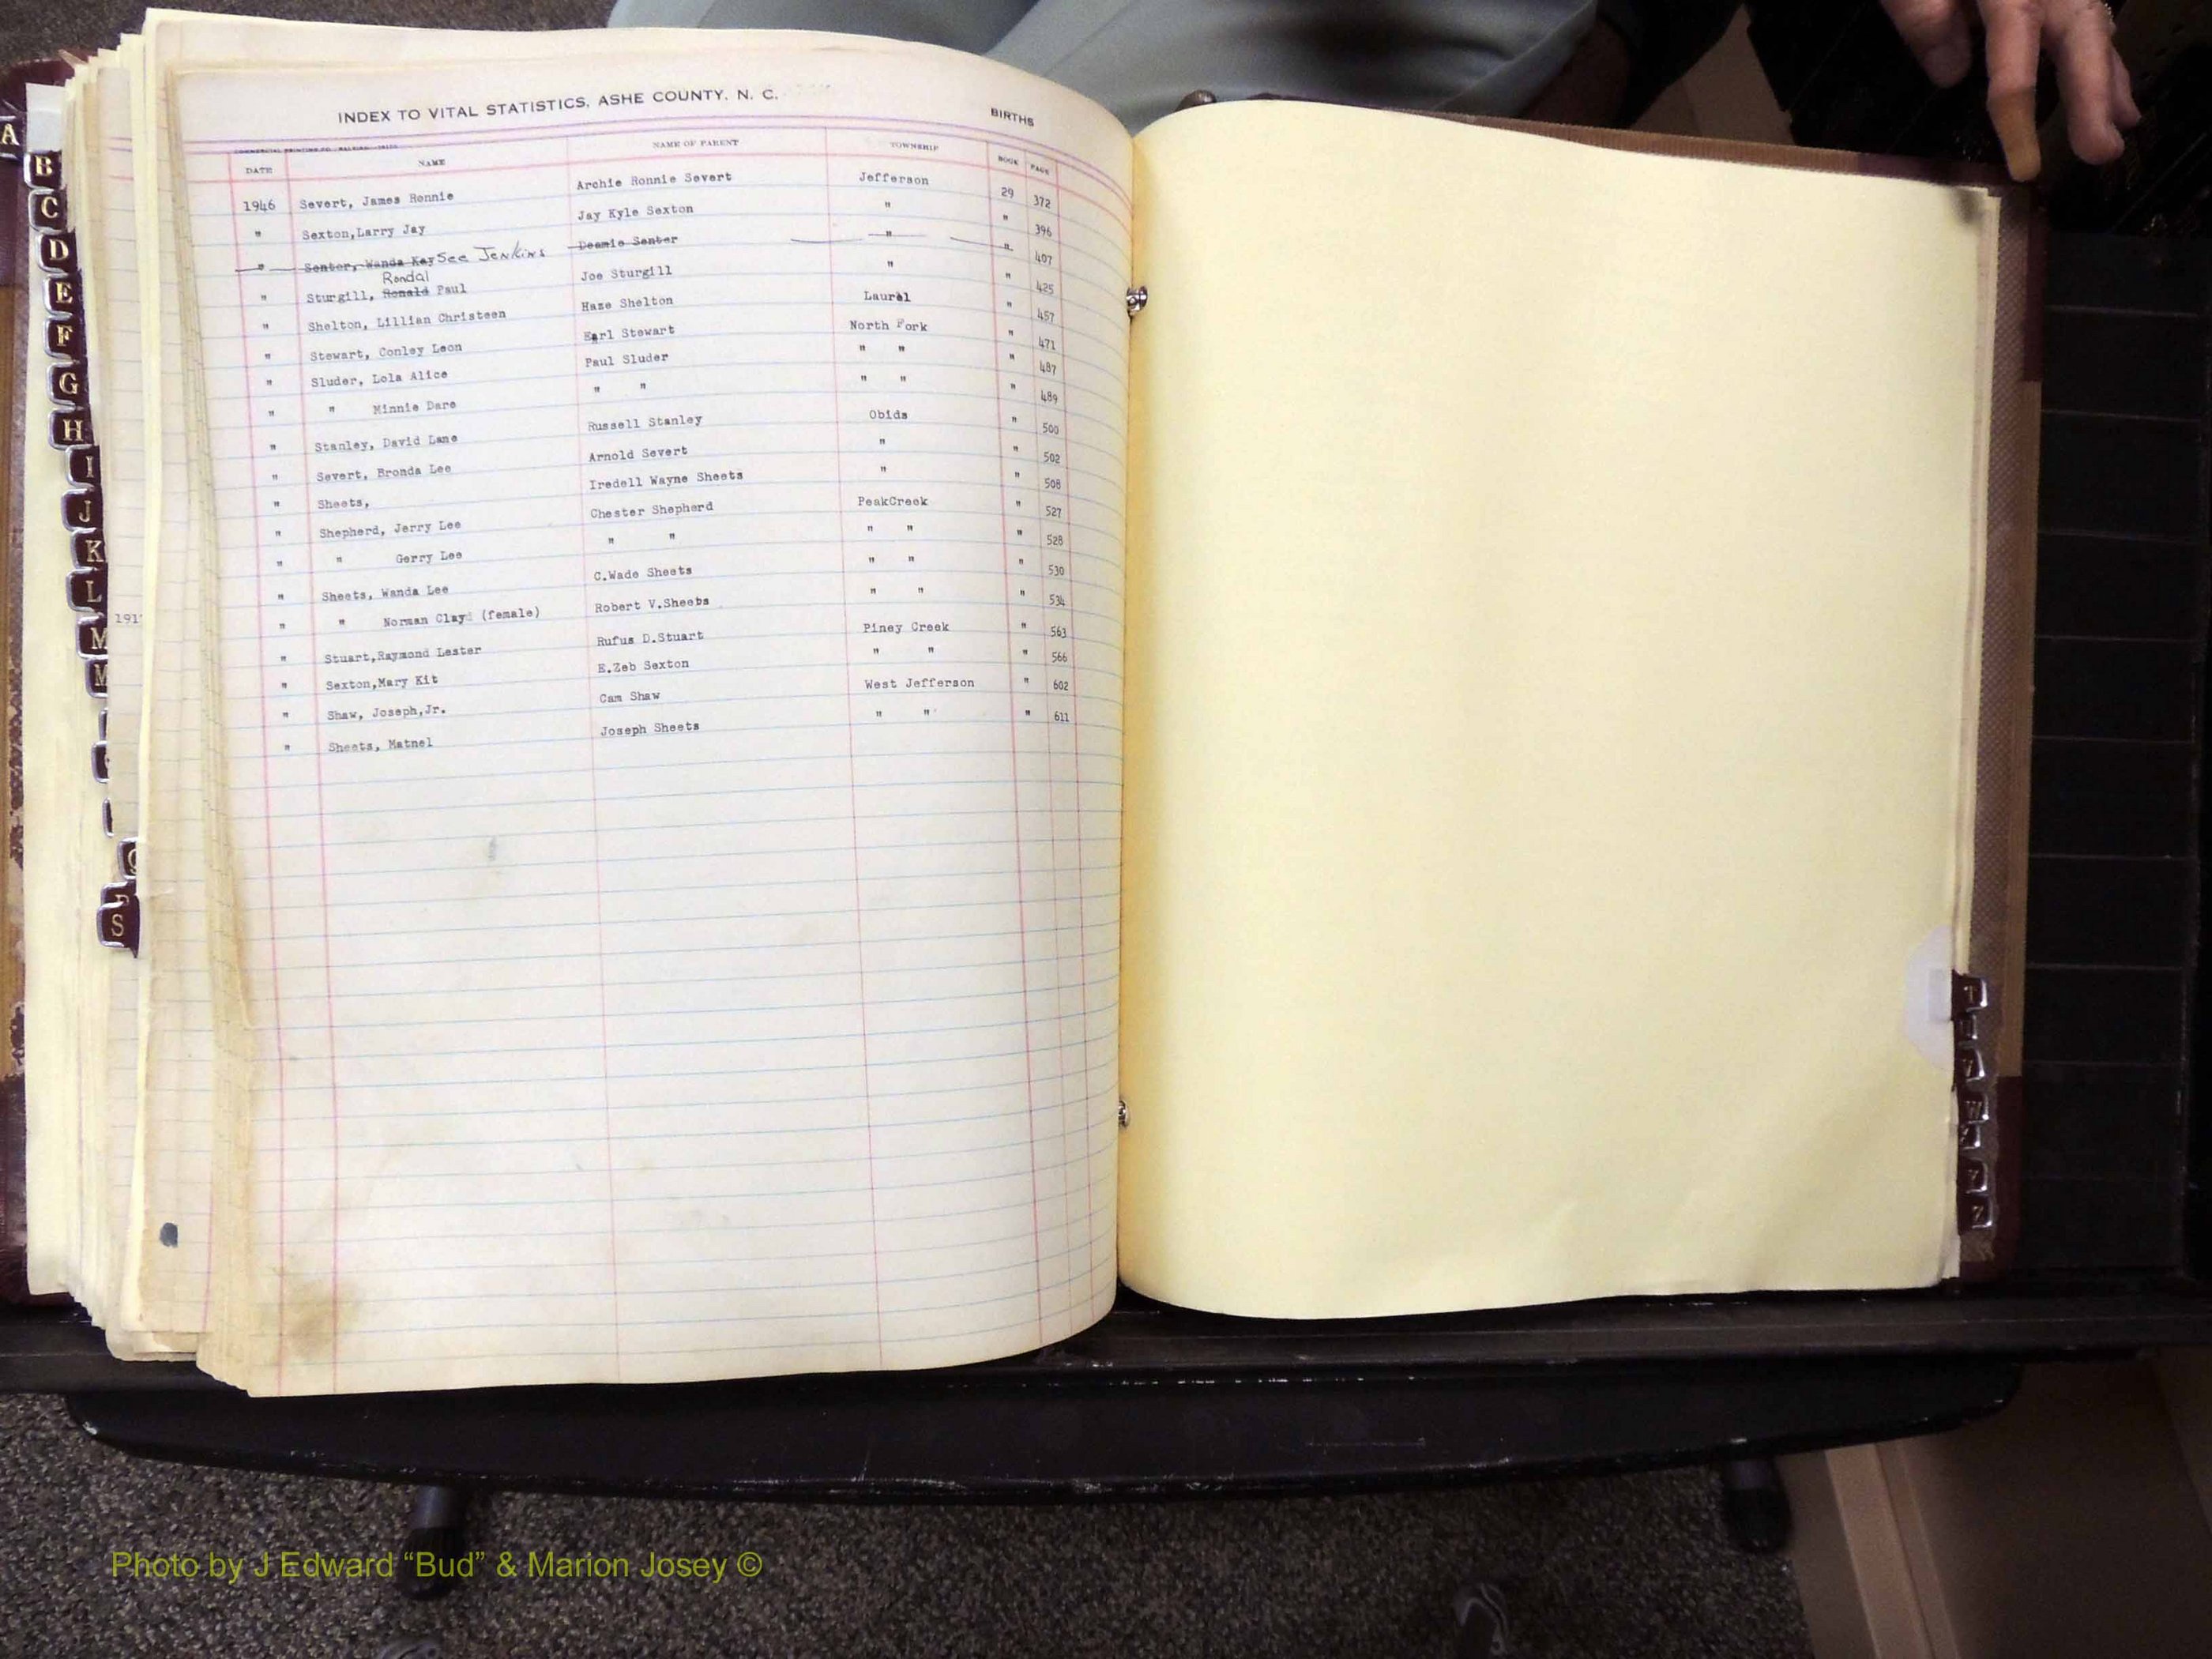 INDEX TO VITAL STATISTICS, ASHE COUNTY, N. C.
BIRTHS
DATE NAME NAME OF PARENT TOWNSHIP BOOK PAGE
1946 Severt, James Ronnie Archie Ronnie Severt Jefferson 29 372
" Sexton,Larry Jay Jay Kyle Sexton " " 396
" Senter, Wanda Kay See Jenkins Deamie Senter " " 407
Rondal
" Sturgill, Ronald Paul Joe Sturgill " " 425
" Shelton, Lillian Christeen Haze Shelton Laurel " 457
" Stewart, Conley Leon Earl Stewart North Fork " 471
" Sluder, Lola Alice Paul Sluder " " " 487
" " Minnie Dare " " " " " 489
" Stanley, David Lane Russell Stanley Obids " 500
" Severt, Bronda Lee Arnold Severt " " 502
" Sheets, Iredell Wayne Sheets " " 508
" Shepherd, Jerry Lee Chester Shepherd PeakCreek " 527
" " Gerry Lee " " " " " 528
" Sheets, Wanda Lee C.Wade Sheets " " " 530
" " Norman Clay (female) Robert V.Sheets " " " 534
" Stuart,Raymond Lester Rufus D.Stuart Piney Creek " 563
" Sexton,Mary Kit E.Zeb Sexton " " " 566
" Shaw, Joseph,Jr. Cam Shaw West Jefferson " 602
" Sheets, Matnel Joseph Sheets " " " 611
A
B
C
D
E
F
G
H
I
J
K
L
M
S
191
T
W
Z
Photo by J Edward “Bud” & Marion Josey ©